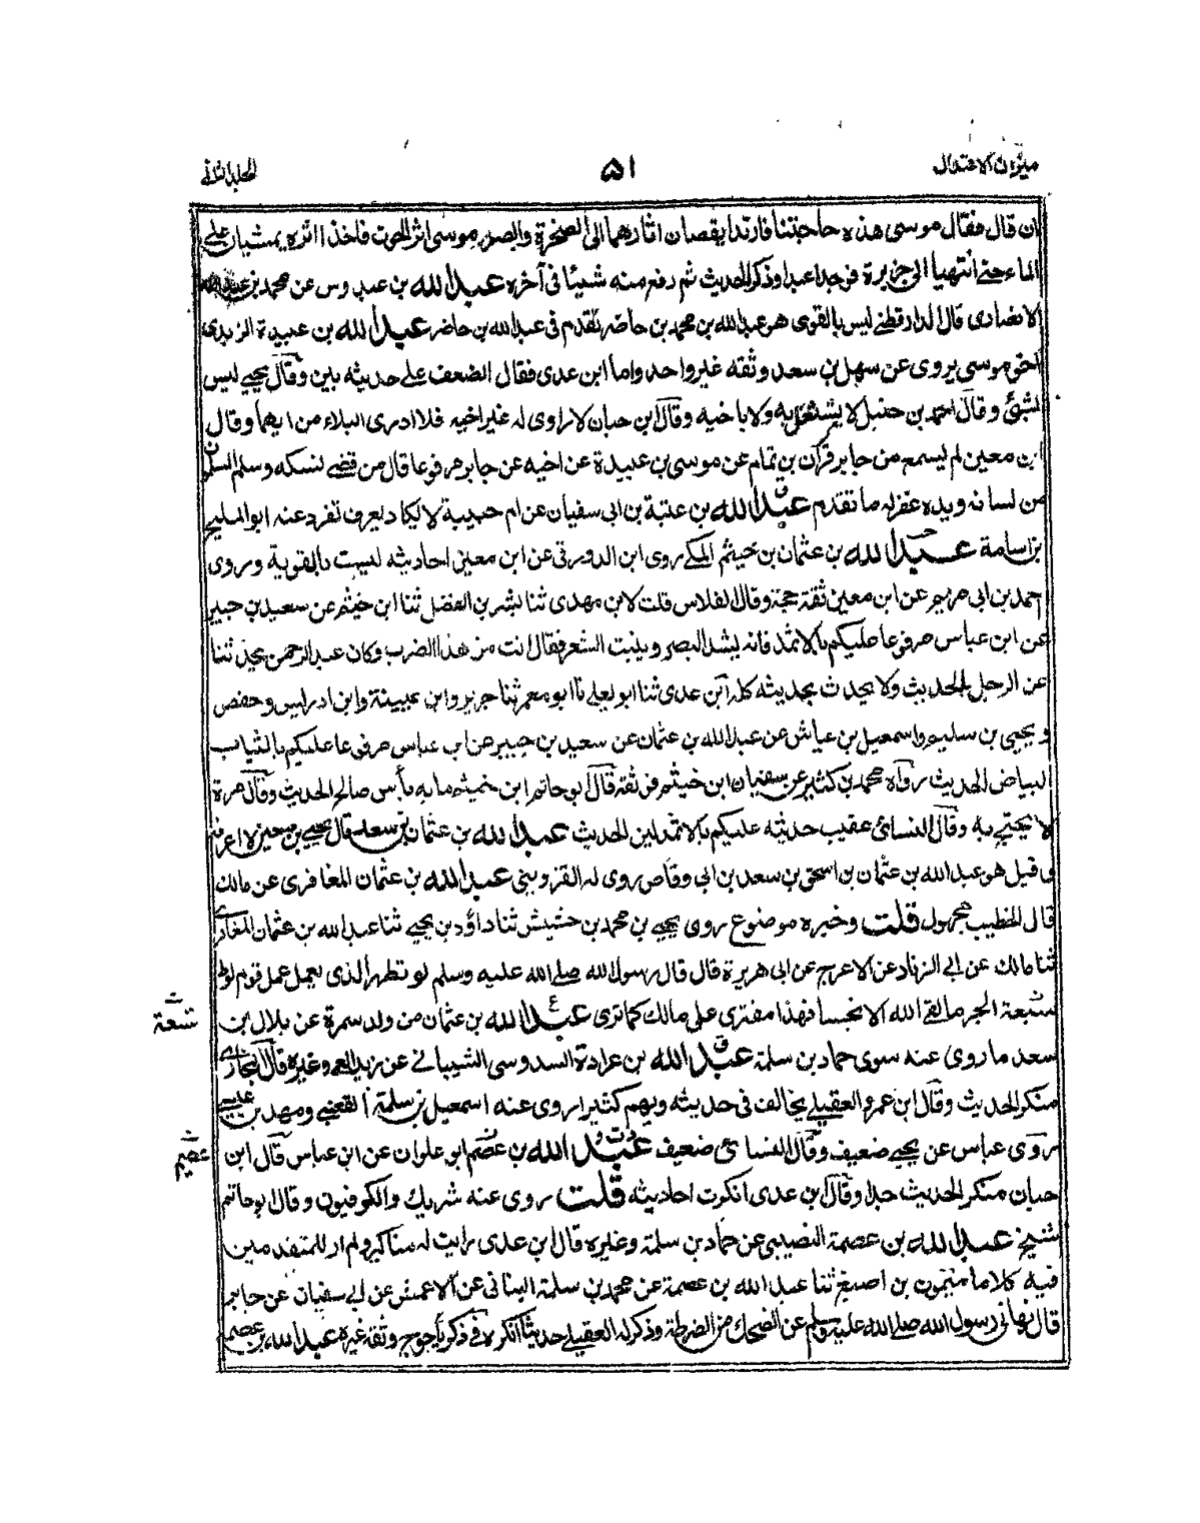 ميزان الاعتدال
٥١
المجلد الثانى
ان قال فقال موسى هذه حاجتنا فارتدا يقصان اثارهما الى الصخرة وابصر موسى اثر الحوت فاخذا اثره يمشيان على
الماء حتى انتهيا الى جزيرة فوجدا عبدا وذكر الحديث ثم رفع منه شيئا فى آخره عبد الله بن عبدوس عن محمد بن عبد الله
الانصارى قال الدارقطنى ليس بالقوى هو عبد الله بن محمد بن حاضر تقدم فى عبد الله بن حاضر عبد الله بن عبيدة الربذى
اخو موسى يروى عن سهل بن سعد وثقه غير واحد واما ابن عدى فقال الضعف على حديثه بين وقال يحيى ليس
بشئ وقال احمد بن حنبل لا يشتغل به ولا باخيه وقال ابن حبان لا راوى له غير اخيه فلا ادرى البلاء من ايهما وقال
ابن معين لم يسمع من جابر قران بن تمام عن موسى بن عبيدة عن اخيه عن جابر مرفوعا قال من قضى نسكه وسلم المسلمون
من لسانه ويده غفر له ما تقدم عبد الله بن عتبة بن ابى سفيان عن ام حبيبة لا يكاد يعرف تفرد عنه ابو المليح
بن اسامة عبد الله بن عثمان بن خيثم المكى روى ابن الدورقى عن ابن معين احاديثه ليست بالقوية وروى
احمد بن ابى مريم عن ابن معين ثقة حجة وقال الفلاس قلت لابن مهدى ثنا بشر بن المفضل ثنا ابن خيثم عن سعيد بن جبير
عن ابن عباس مرفوعا عليكم بالاثمد فانه يشد البصر وينبت الشعر فقال انت من هذا الضرب وكان عبد الرحمن يحدثنا
عن الرجل الحديث ولا يحدث بحديثه كله ابن عدى ثنا ابو يعلى نا ابو معمر ثنا جرير وابن عيينة وابن ادريس وحفص
ويحيى بن سليم واسمعيل بن عياش عن عبد الله بن عثمان عن سعيد بن جبير عن ابن عباس مرفوعا عليكم بالثياب
البياض الحديث رواه محمد بن كثير عن سفيان ابن خيثم فوثقه قال ابو حاتم ابن خيثم ما به بأس صالح الحديث وقال مرة
لا يحتج به وقال النسائى عقيب حديثه عليكم بالاثمد لين الحديث عبد الله بن عثمان بن سعد قال يحيى بن معين لا اعرفه
فى قيل هو عبد الله بن عثمان بن اسحق بن سعد بن ابى وقاص روى له القزوينى عبد الله بن عثمان المعافرى عن مالك
قال الخطيب مجهول قلت وخبره موضوع روى يحيى بن محمد بن حشيش ثنا داؤد بن يحيى ثنا عبد الله بن عثمان المعافرى
ثنا مالك عن ابى الزناد عن الاعرج عن ابى هريرة قال قال رسول الله صلى الله عليه وسلم لو تطهر الذى يعمل عمل قوم لوط
بسبعة ابحر ما لقى الله الا نجسا فهذا مفترى على مالك كما ترى عبد الله بن عثمان من ولد سمرة عن بلال بن
سعد ما روى عنه سوى حماد بن سلمة عبد الله بن عرادة السدوسى الشيبانى عن زيد العمى وغيره قال البخارى
منكر الحديث وقال ابن عمرو العقيلى يخالف فى حديثه ويهم كثيرا روى عنه اسمعيل بن سلمة القعنبى ومهدى بن عيسى
روى عباس عن يحيى ضعيف وقال النسائى ضعيف عبد الله بن عصم ابو علوان عن ابن عباس قال ابن
حبان منكر الحديث جدا وقال ابن عدى انكرت احاديثه قلت روى عنه شريك والكوفيون وقال ابو حاتم
شيخ عبد الله بن عصمة النصيبى عن حماد بن سلمة وغيره قال ابن عدى رايت له مناكير ولم ار للمتقدمين
فيه كلاما ميمون بن اصبغ ثنا عبد الله بن عصمة عن محمد بن سلمة البنانى عن الاعمش عن ابى سفيان عن جابر
قال نهانى رسول الله صلى الله عليه وسلم عن الضحك من الضرطة وذكر له العقيلى حديثا انكره فى ذكر يأجوج وثقه غيره عبد الله بن عصمة